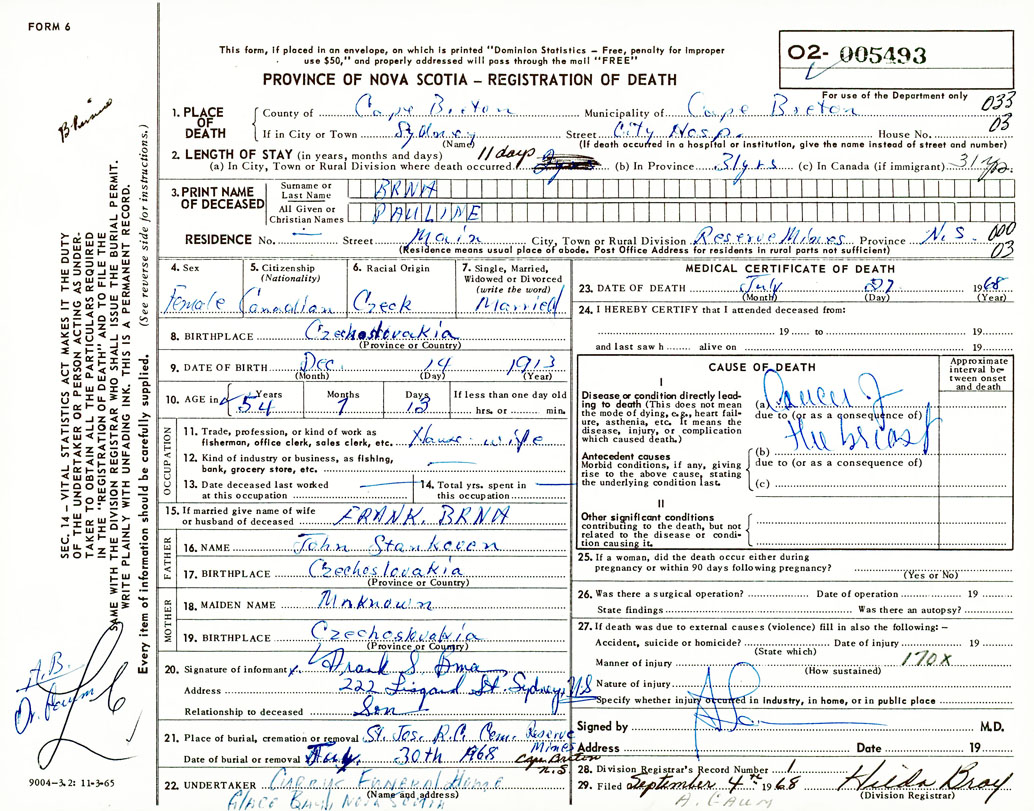 FORM 6
This form, if placed in an envelope, on which is printed "Dominion Statistics — Free, penalty for improper
use $50," and properly addressed will pass through the mail "FREE"
O2- 005493
PROVINCE OF NOVA SCOTIA — REGISTRATION OF DEATH
For use of the Department only
033
03
1. PLACE OF DEATH
County of Cape Breton Municipality of Cape Breton
If in City or Town Sydney Street City Hosp. House No.
(Name) (If death occurred in a hospital or institution, give the name instead of street and number)
2. LENGTH OF STAY (in years, months and days) 11 days
(a) In City, Town or Rural Division where death occurred (b) In Province 31 yrs (c) In Canada (if immigrant) 31 yrs.
3. PRINT NAME OF DECEASED
Surname or Last Name BRNA
All Given or Christian Names PAULINE
RESIDENCE No. — Street Main City, Town or Rural Division Reserve Mines Province N.S.
000
03
(Residence means usual place of abode. Post Office Address for residents in rural parts not sufficient)
4. Sex Female
5. Citizenship (Nationality) Canadian
6. Racial Origin Czeck
7. Single, Married, Widowed or Divorced (write the word) Married
8. BIRTHPLACE Czechoslovakia
(Province or Country)
9. DATE OF BIRTH Dec. 14 1913
(Month) (Day) (Year)
10. AGE in Years 54 Months 7 Days 13 If less than one day old hrs. or min.
OCCUPATION
11. Trade, profession, or kind of work as fisherman, office clerk, sales clerk, etc. House-wife
12. Kind of industry or business, as fishing, bank, grocery store, etc. —
13. Date deceased last worked at this occupation — 14. Total yrs. spent in this occupation —
15. If married give name of wife or husband of deceased FRANK. BRNA
FATHER
16. NAME John Stankoven
17. BIRTHPLACE Czechoslovakia
(Province or Country)
MOTHER
18. MAIDEN NAME Unknown
19. BIRTHPLACE Czechoslovakia
(Province or Country)
20. Signature of informant x. Frank S. Brna
Address 222 Lisgard St. Sydney, NS
Relationship to deceased Son
21. Place of burial, cremation or removal St. Jos. R.C. Cem. Reserve Mines
Cape Breton
N.S
Date of burial or removal July 30th 1968
22. UNDERTAKER Curry's Funeral Home
(Name and address)
Glace Bay, Nova Scotia
MEDICAL CERTIFICATE OF DEATH
23. DATE OF DEATH July 27 1968
(Month) (Day) (Year)
24. I HEREBY CERTIFY that I attended deceased from:
19 to 19
and last saw h alive on 19
CAUSE OF DEATH
Approximate interval between onset and death
I
Disease or condition directly leading to death (This does not mean the mode of dying, e.g., heart failure, asthenia, etc. It means the disease, injury, or complication which caused death.)
(a) Cancer of
due to (or as a consequence of)
the breast
Antecedent causes
Morbid conditions, if any, giving rise to the above cause, stating the underlying condition last.
(b)
due to (or as a consequence of)
(c)
II
Other significant conditions
contributing to the death, but not related to the disease or condition causing it.
25. If a woman, did the death occur either during pregnancy or within 90 days following pregnancy?
(Yes or No)
26. Was there a surgical operation? Date of operation 19
State findings Was there an autopsy?
27. If death was due to external causes (violence) fill in also the following:—
Accident, suicide or homicide? Date of injury 19
(State which)
Manner of injury 170X
(How sustained)
Nature of injury
Specify whether injury occurred in industry, in home, or in public place
Signed by M.D.
Address Date 19
28. Division Registrar's Record Number 1
29. Filed on September 4th 1968 Hilda Bray
(Division Registrar)
SEC. 14 — VITAL STATISTICS ACT MAKES IT THE DUTY
OF THE UNDERTAKER OR PERSON ACTING AS UNDER-
TAKER TO OBTAIN ALL THE PARTICULARS REQUIRED
IN THE "REGISTRATION OF DEATH" AND TO FILE THE
SAME WITH THE DIVISION REGISTRAR WHO SHALL ISSUE THE BURIAL PERMIT.
WRITE PLAINLY WITH UNFADING INK. THIS IS A PERMANENT RECORD.
Every item of information should be carefully supplied. (See reverse side for instructions.)
A.B.
9004-3.2: 11-3-65